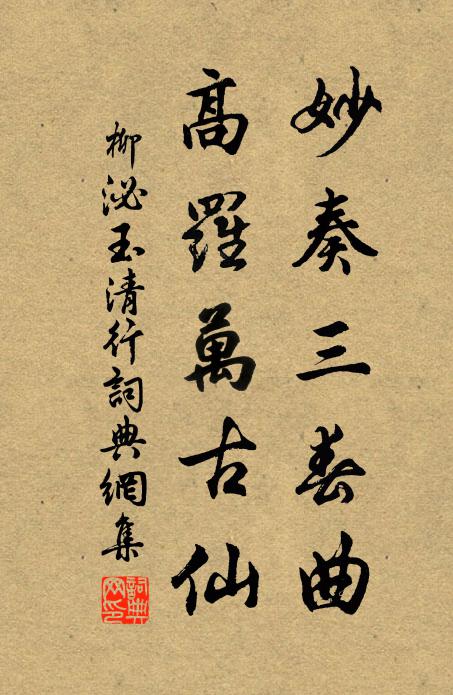 妙奏三春曲
高羅萬古仙
柳泌玉清行詞典網集
詞典網印